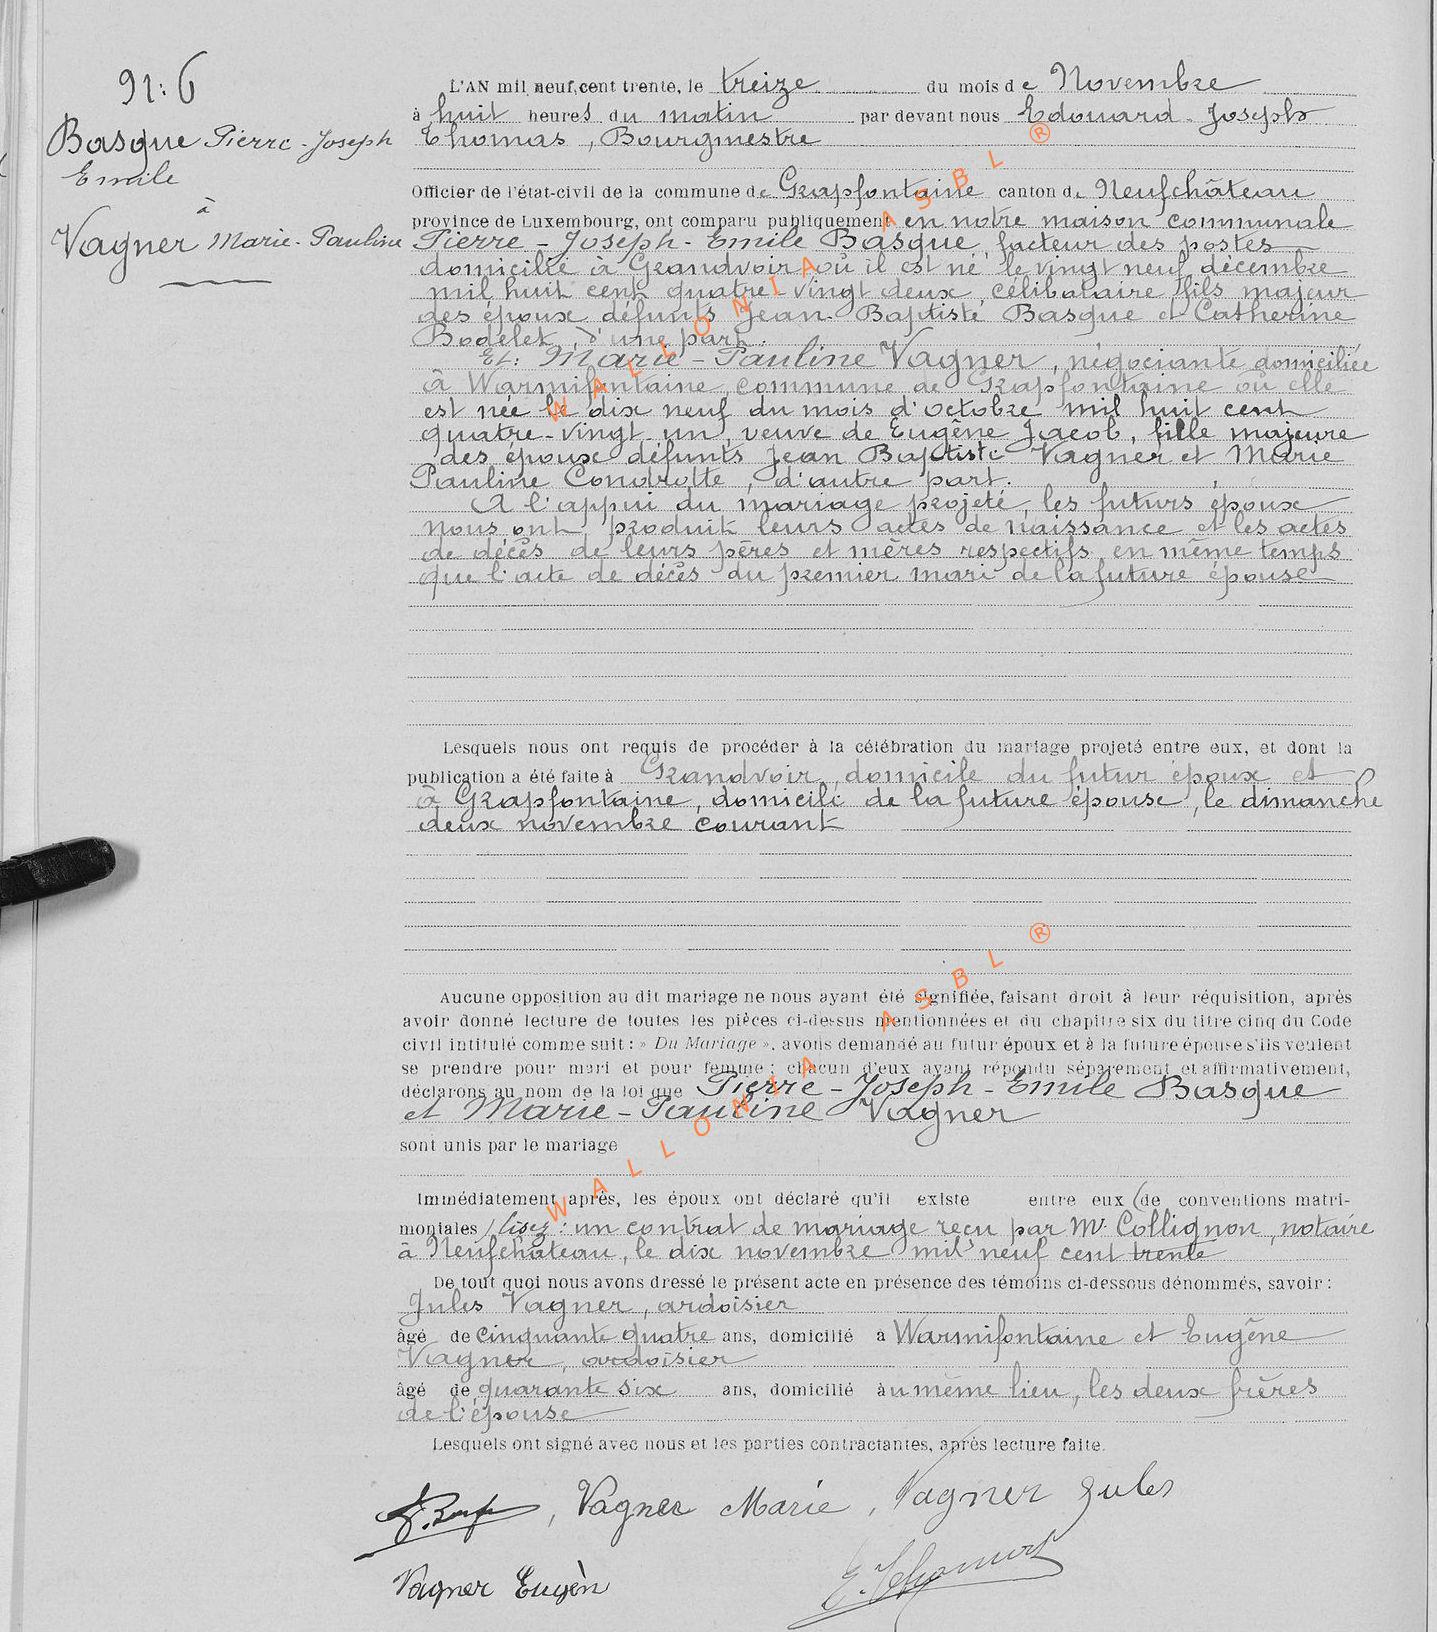 N: 6
Basque Pierre-Joseph
Emile
à
Vagner Marie-Pauline
L'AN mil neuf cent trente, le treize du mois de Novembre
à huit heures du matin par devant nous Edouard-Joseph
Thomas, Bourgmestre
Officier de l'état-civil de la commune de Grapfontaine canton de Neufchâteau
province de Luxembourg, ont comparu publiquement en notre maison communale
Pierre-Joseph-Emile Basque, facteur des postes
domicilié à Grandvoir où il est né le vingt neuf décembre
mil huit cent quatre-vingt deux, célibataire, fils majeur
des époux défunts Jean-Baptiste Basque et Catherine
Bodelet, d'une part.
Et: Marie-Pauline Vagner, négociante domiciliée
à Warmifontaine, commune de Grapfontaine où elle
est née le dix neuf du mois d'octobre mil huit cent
quatre-vingt-un, veuve de Eugêne Jacob, fille majeure
des époux défunts Jean Baptiste Vagner et Marie
Pauline Condrotte, d'autre part.
A l'appui du mariage projeté, les futurs époux
nous ont produit leurs actes de naissance et les actes
de décès de leurs pères et mères respectifs en même temps
que l'acte de décès du premier mari de la future épouse
Lesquels nous ont requis de procéder à la célébration du mariage projeté entre eux, et dont la
publication a été faite à Grandvoir, domicile du futur époux et
à Grapfontaine, domicile de la future épouse, le dimanche
deux novembre courant
Aucune opposition au dit mariage ne nous ayant été signifiée, faisant droit à leur réquisition, après
avoir donné lecture de toutes les pièces ci-dessus mentionnées et du chapitre six du titre cinq du Code
civil intitulé comme suit : » Du Mariage ». avons demandé au futur époux et à la future épouse s'ils veulent
se prendre pour mari et pour femme ; chacun d'eux ayant répondu séparément et affirmativement,
déclarons au nom de la loi que Pierre-Joseph-Emile Basque
et Marie-Pauline Vagner
sont unis par le mariage
Immédiatement après, les époux ont déclaré qu'il existe entre eux (de conventions matri-
moniales) lisez : un contrat de mariage reçu par Mr. Collignon, notaire
à Neufchâteau, le dix novembre mil neuf cent trente
De tout quoi nous avons dressé le présent acte en présence des témoins ci-dessous dénommés, savoir :
Jules Vagner, ardoisier
âgé de cinquante quatre ans, domicilié à Warmifontaine et Eugêne
Vagner, ardoisier
âgé de quarante six ans, domicilié au même lieu, les deux frères
de l'épouse
Lesquels ont signé avec nous et les parties contractantes, après lecture faite.
Vagner Marie, Vagner Jules
Vagner Eugèn
E. Thomas
WALLONIA ASBL ®
WALLONIA ASBL ®